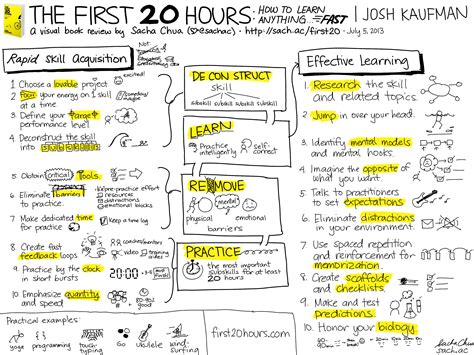 THE FIRST 20 HOURS: HOW TO LEARN ANYTHING... FAST | JOSH KAUFMAN
a visual book review by Sacha Chua (@sachac) · http://sach.ac/first20 · July 5, 2013
Rapid Skill Acquisition
excited!
1. Choose a lovable project
2. Focus your energy on 1 skill
at a time
3. Define your target
performance level
4. Deconstruct the skill
into
5. Obtain critical Tools
6. Eliminate barriers
prep effort
resources
distractions
emotional blocks
7. Make dedicated time
for practice
Keep a time log
8. Create fast
feedback loops
coaches
video
9. Practice by the clock
in short bursts
20:00
10. Emphasize quantity
and speed
DECONSTRUCT
skill
subskill subskill subskill subskill
LEARN
Practice intelligently
self-correct
REMOVE
physical
mental
emotional
barriers
PRACTICE
the most important
subskills for at least
20 hours
Effective Learning
1. Research the skill
and related topics.
2. Jump in over your head.
3. Identify mental models
and mental hooks.
4. Imagine the opposite of
what you want.
5. Talk to practitioners
to set expectations
6. Eliminate distractions
in your environment.
7. Use spaced repetition
and reinforcement for
memorization.
8. Create scaffolds
and checklists
9. Make and test
predictions.
10. Honor your biology.
Practical examples:
yoga
programming
touch-typing
Go
ukulele
wind-surfing
first20hours.com
Sacha Chua
sach.ac